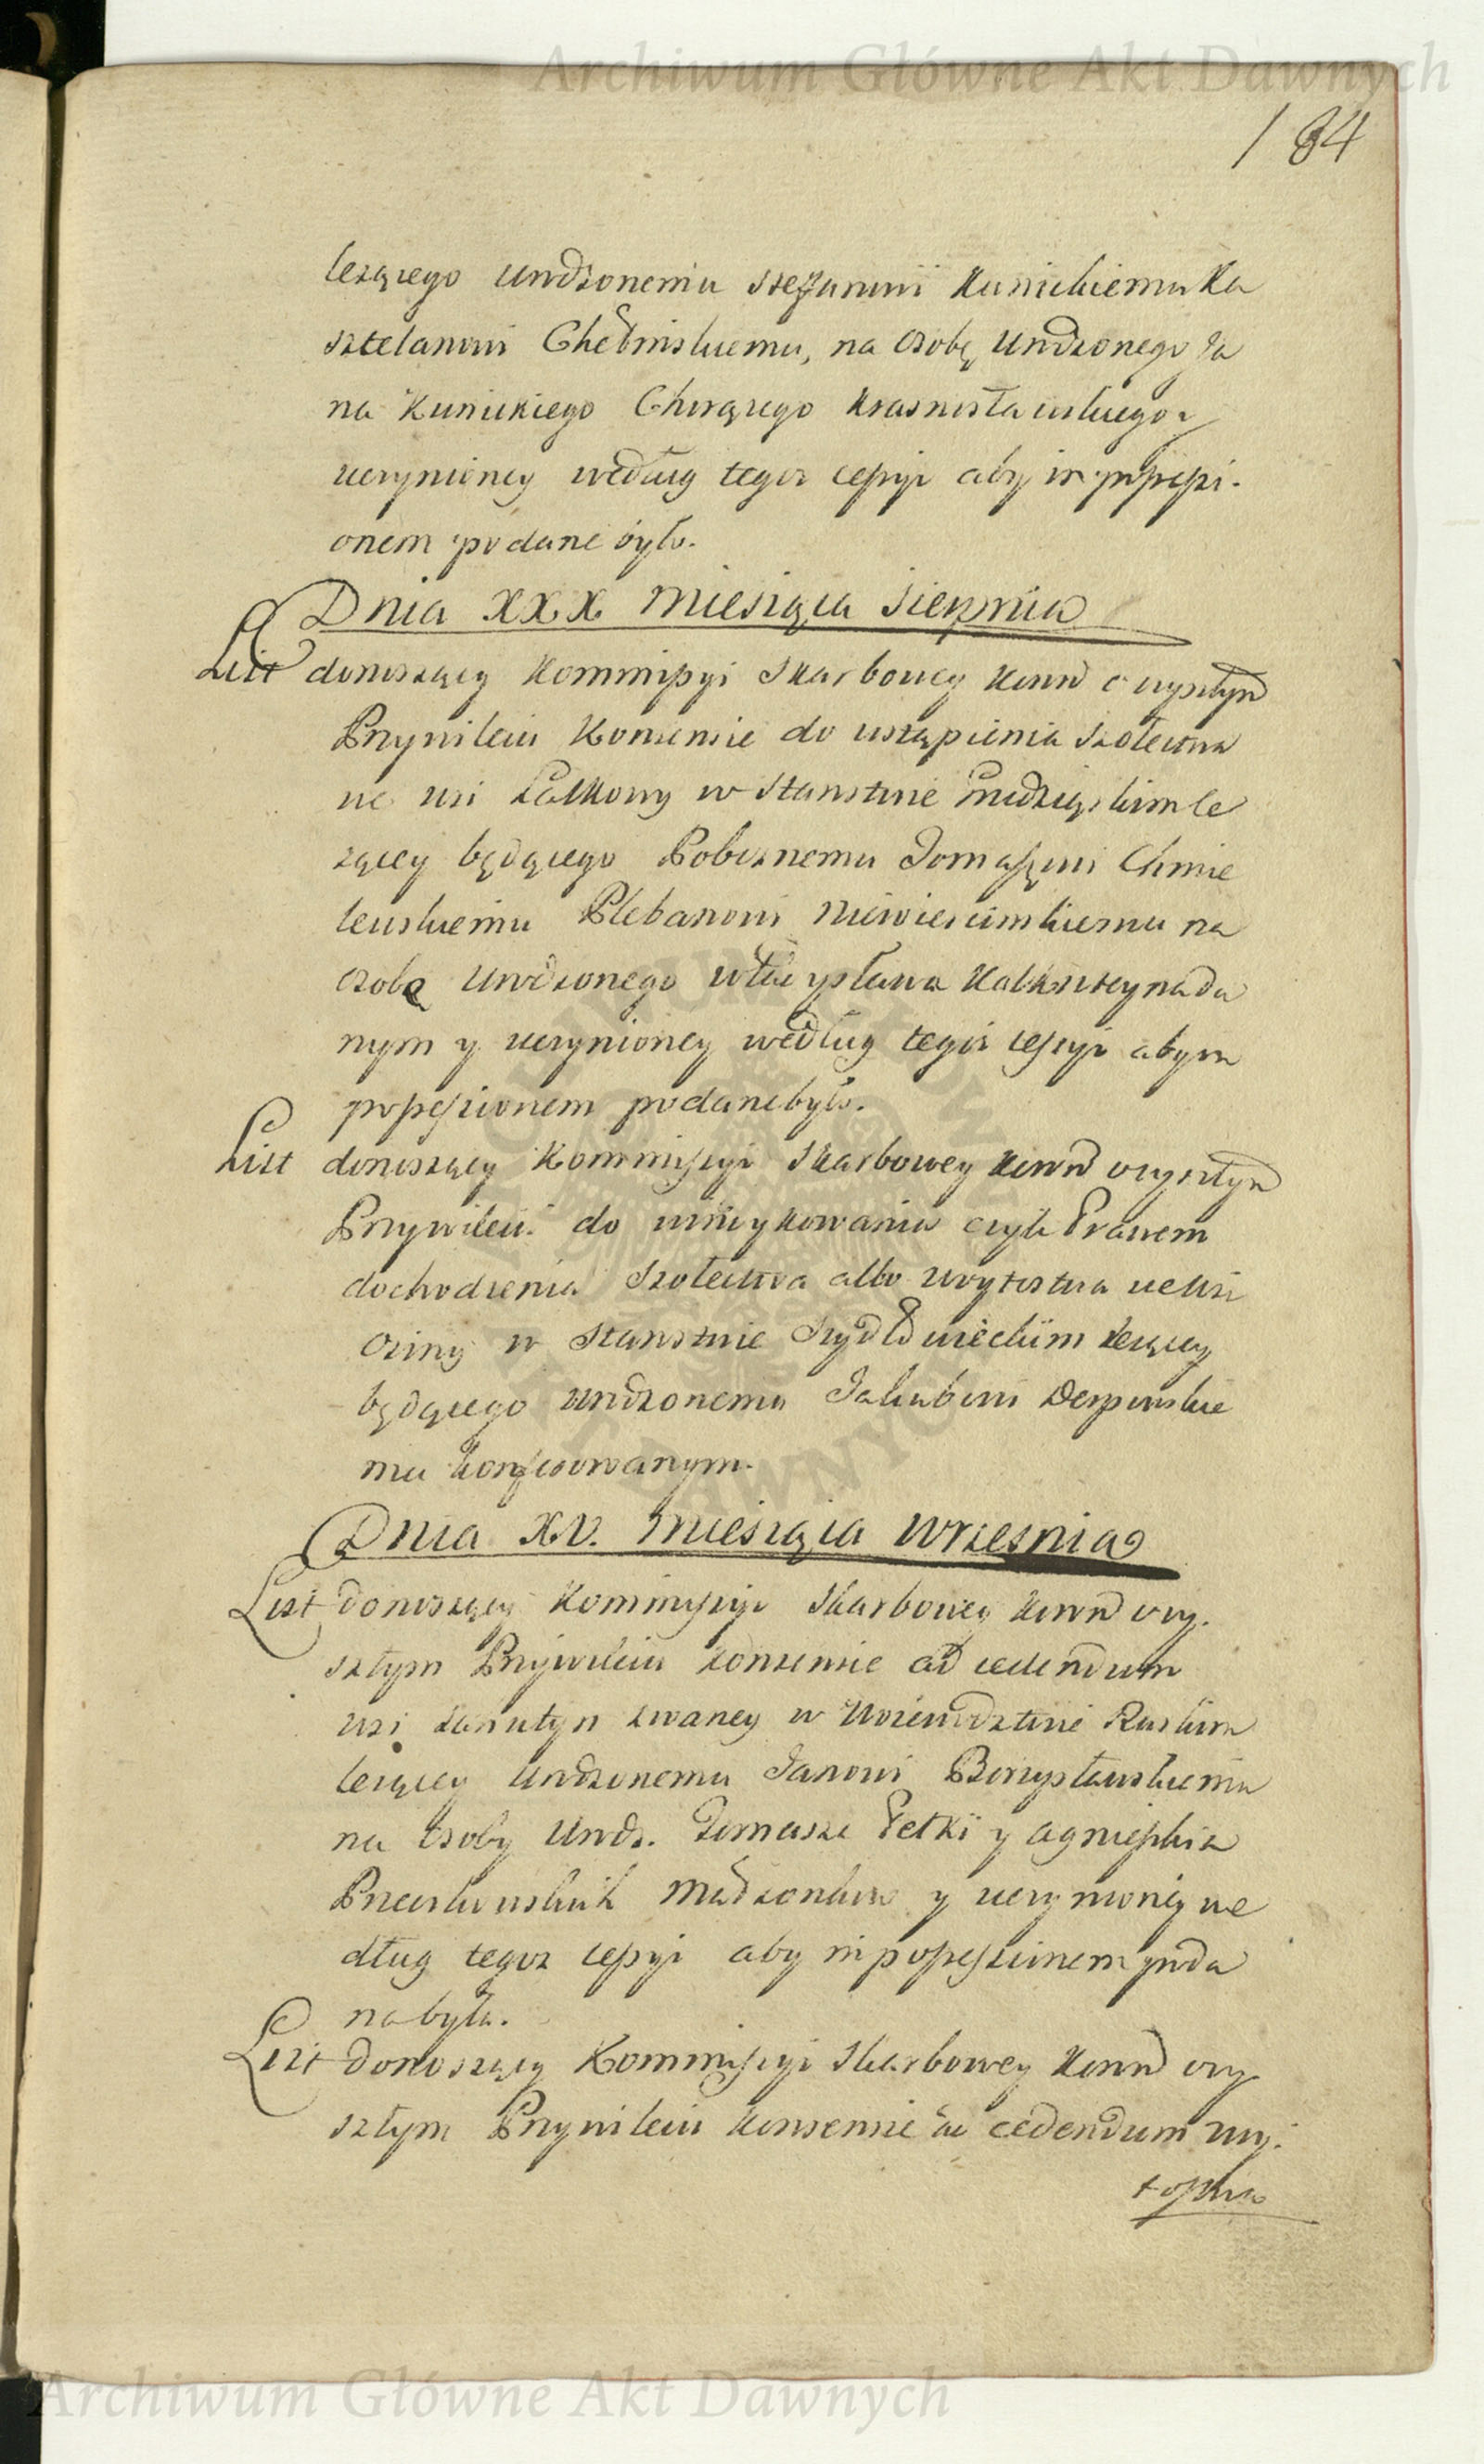 Archiwum Główne Akt Dawnych
184
leżącego Urodzonemu Stefanowi Kunickiemu Ka
sztelanowi Chełmskiemu, na Osobę Urodzonego Ja
na Kunickiego Chorążego Krasnostawskiego
uczynioney według tegoż cessyi aby in possessi-
onem podane było.
Dnia XXX Miesiąca Sierpnia
List donoszący Kommissyi Skarbowey Koron o wyszłym
Przywileiu Konsensie do ustąpienia Szołectwa
we wsi w Starostwie le
żącey będącego Pobożnemu Tomaszowi Chmie
lewskiemu Plebanowi na
Osobę Urodzonego Władysława nada
nym y uczynioney według tegoż cessyi aby in
possessionem podane było.
List donoszący Kommissyi Skarbowey Koron o wyszłym
Przywileiu do windykowania czyli Prawem
dochodzenia Szołectwa albo Woytostwa we wsi
Osiny w Starostwie Szydłowieckim leżącey
będącego Urodzonemu Jakubowi
mu konferowanym.
Dnia XV. Miesiąca Września
List donoszący Kommissyi Skarbowey Koron o wy-
szłym Przywileiu Konsensie ad cedendum
wsi zwaney w Woiewodztwie Ruskim
leżącey Urodzonemu Janowi Borysławskiemu
na Osoby Urodz. Tomasza Pełki y Agnieszki z
Małżonków y uczynioney we
dług tegoż cessyi aby in possessionem poda
na była.
List donoszący Kommissyi Skarbowey Koron o wy
szłym Przywileiu Konsensie ad cedendum Woy-
tostwa
Archiwum Główne Akt Dawnych